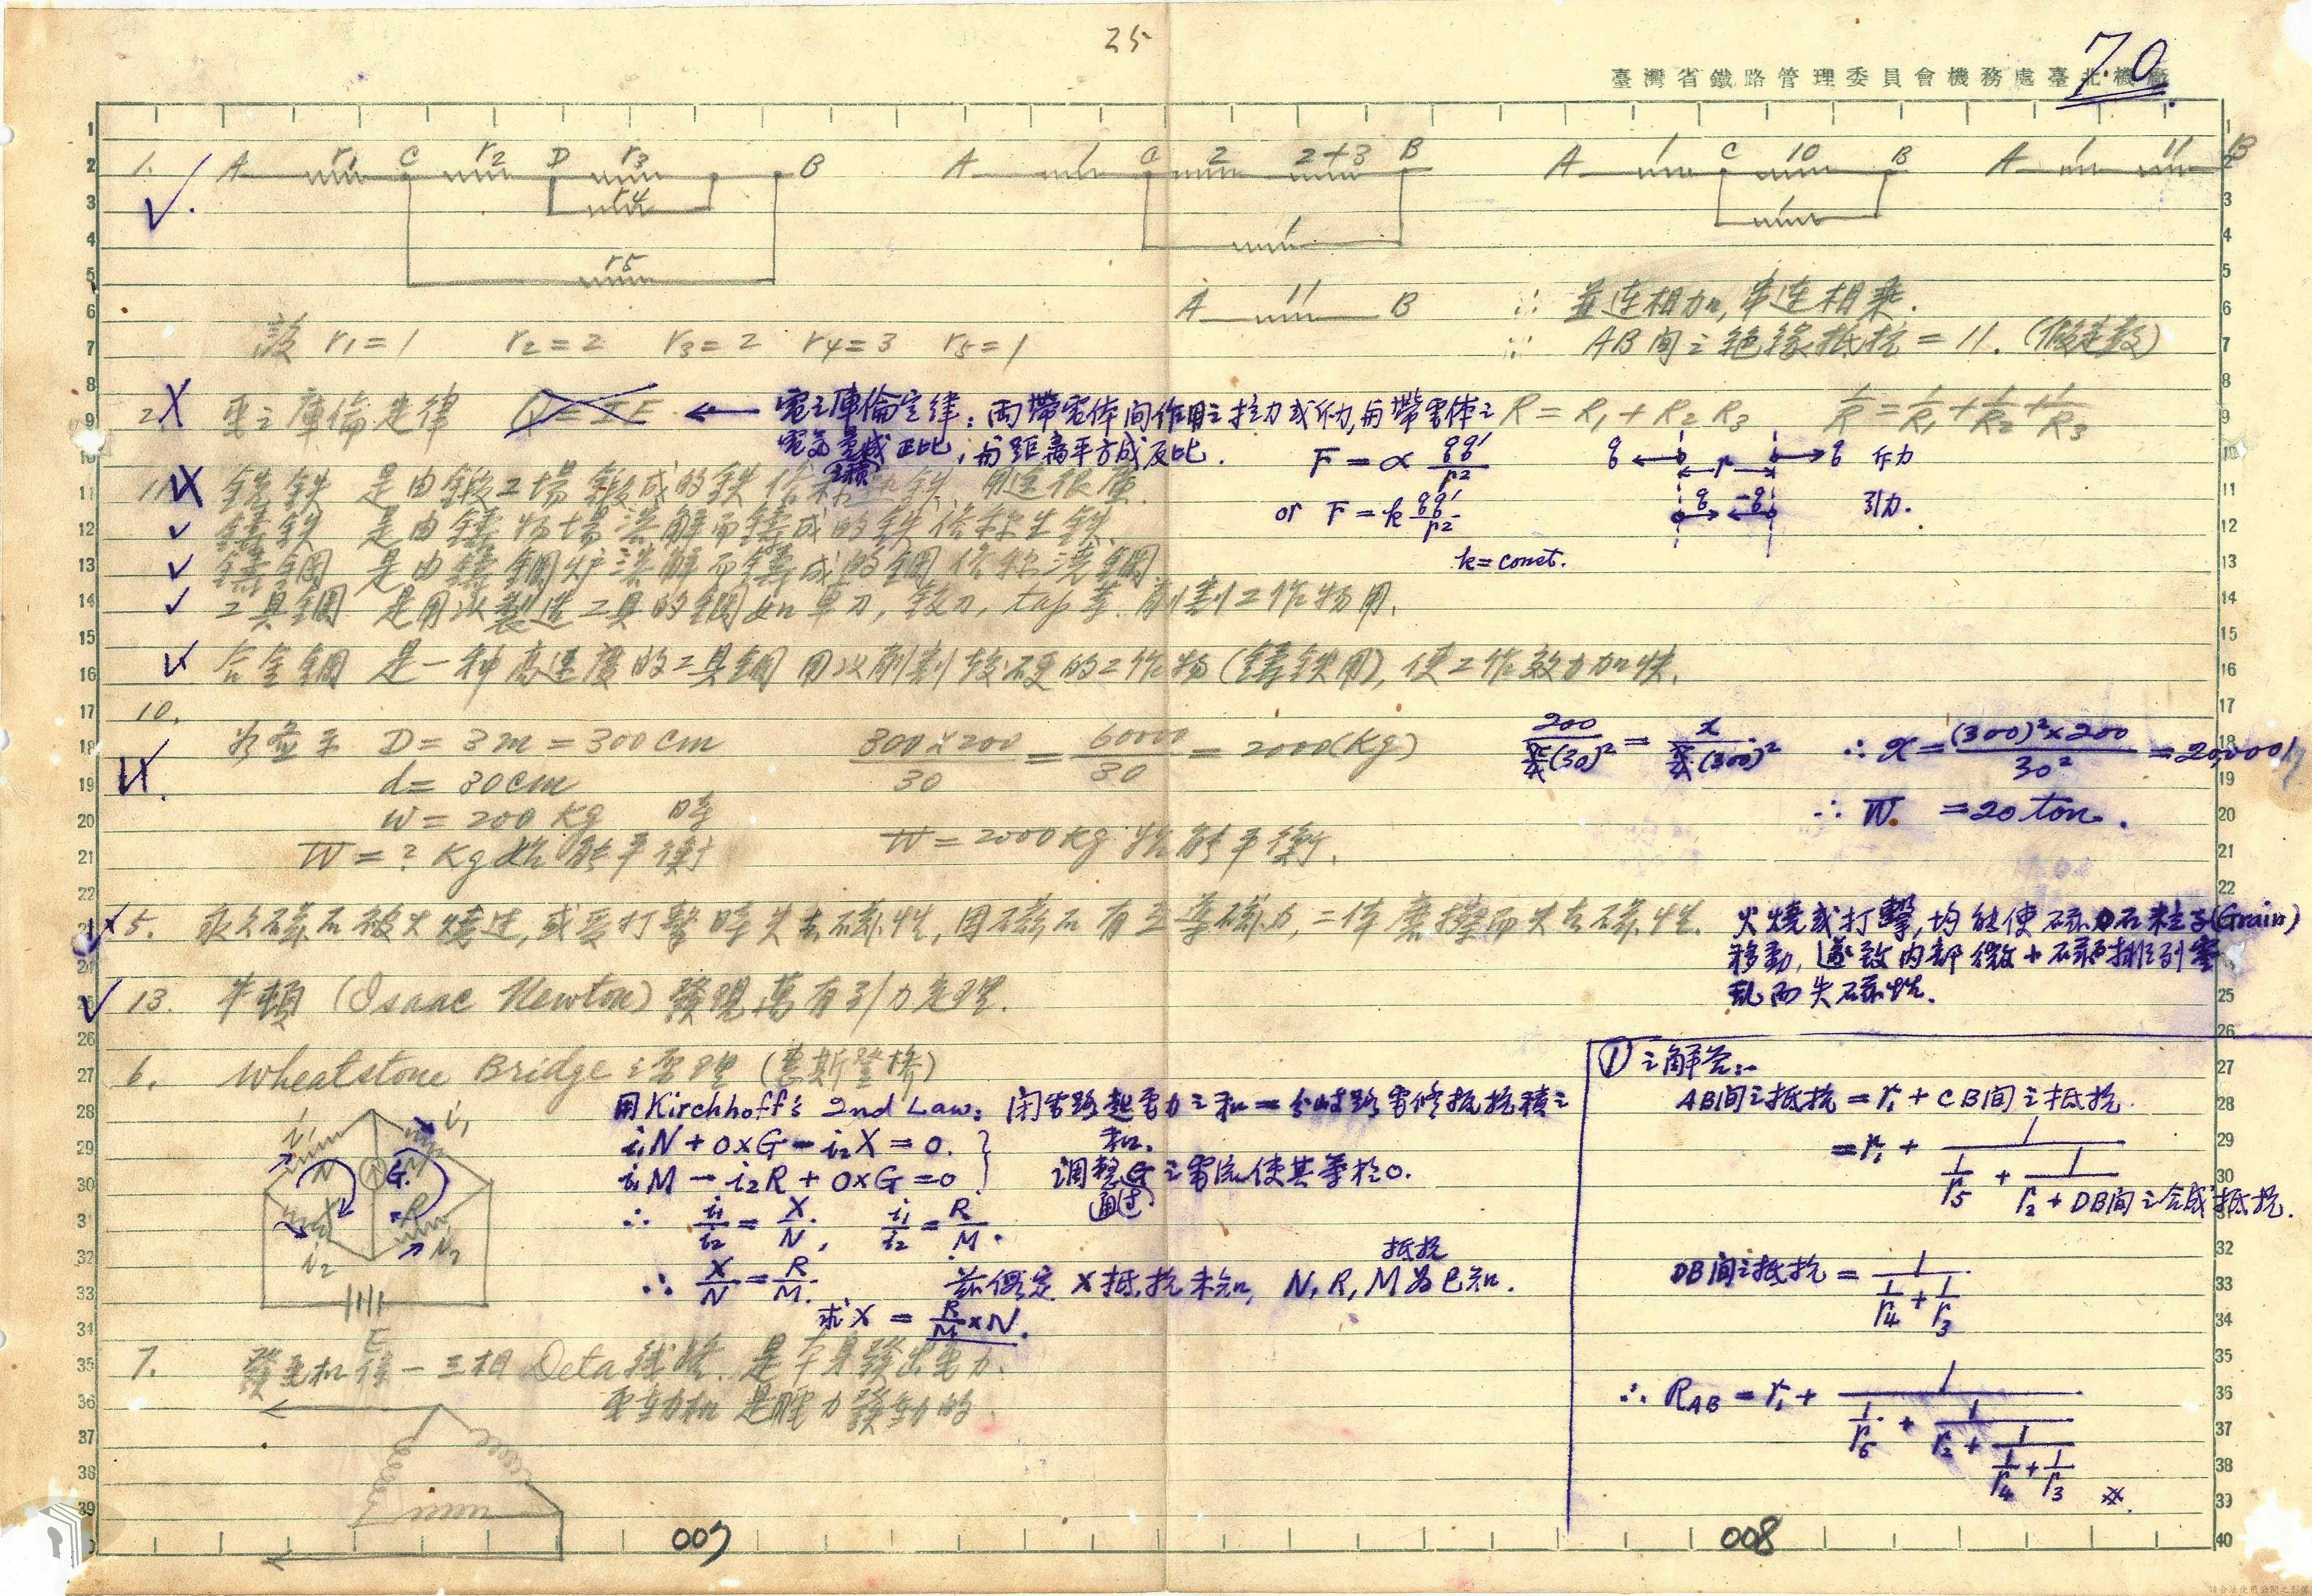 25
70
臺灣省鐵路管理委員會機務處臺北機廠
1. A r1 C r2 D r3 B
r4
r5
A 1 C 2 2+3 B
1
A 1 C 10 B
1
A 1 11 B
A 11 B
∴ 並連相加, 串連相乘.
設 r1=1 r2=2 r3=2 r4=3 r5=1
∵ AB間之絶緣抵抗=11. (假定數)
2. 電之庫倫定律 Q=IE ← 電之庫倫定律: 兩帶電体间作用之拉力或斥力, 与帶電体之
電氣量成正比, 与距離平方成反比.
R=R1+R2 R3 1/R=1/R1+1/R2+1/R3
F=∝ qq'/r2
or F=k qq'/r2
k=const.
q ← r → q 斥力
q -q 引力.
11. 鍛鉄 是由鍛工場鍛成的鉄俗称熟鉄, 用途很廣.
鑄鉄 是由鑄物場溶解而鑄成的鉄俗称生鉄.
鑄鋼 是由鑄鋼炉溶解而鑄成的鋼俗称澆鋼
工具鋼 是用以製造工具的鋼如車刀, 鉸刀, tap等. 削割工作物用.
合金鋼 是一种高速度的工具鋼 用以削割較硬的工作物(鑄鉄用), 使工作效力加快.
10.
水壺子 D=3m=300cm
d=30cm
w=200Kg 時
W=? Kg 才能平衡
300×200/30=60000/30=2000(Kg)
W=2000kg 才能平衡.
200/π/4(30)2=x/π/4(300)2 ∴ x=(300)2×200/302=20,000kg
∴ W=20 ton.
5. 永久磁石被火燒过, 或受打擊時失去磁性, 因磁石有互導磁力, 二体磨擦而失去磁性.
火燒或打擊, 均能使磁力石粒子(Grain)
移動, 遂致内部微小磁石排列零
乱而失磁性.
13. 牛頓 (Isaac Newton) 發現萬有引力定理.
6. Wheatstone Bridge 之原理 (惠斯登橋)
用Kirchhoff's 2nd Law: 闭電路起電力之和=分岐路電修抵抗積之
和.
i1N+0×G-i2X=0.
i1M-i2R+0×G=0
調整G之電流使其等於0.
通过
∴ i1/i2=X/N, i1/i2=R/M.
∴ X/N=R/M. 茲假定 X抵抗未知, N, R, M為已知.
抵抗
求X=R/M×N.
i1 i1 N M G X R i2 i2
E
7. 發電机 係一三相Deta线捲. 是本身發出電力.
電動机 是電力發動的.
①之解答:-
AB间之抵抗=r1+CB间之抵抗
=r1+1/1/r5+1/r2+DB间之合成抵抗.
DB间之抵抗=1/1/r4+1/r3
∴ RAB=r1+1/1/r5+1/r2+1/1/r4+1/r3
007
008